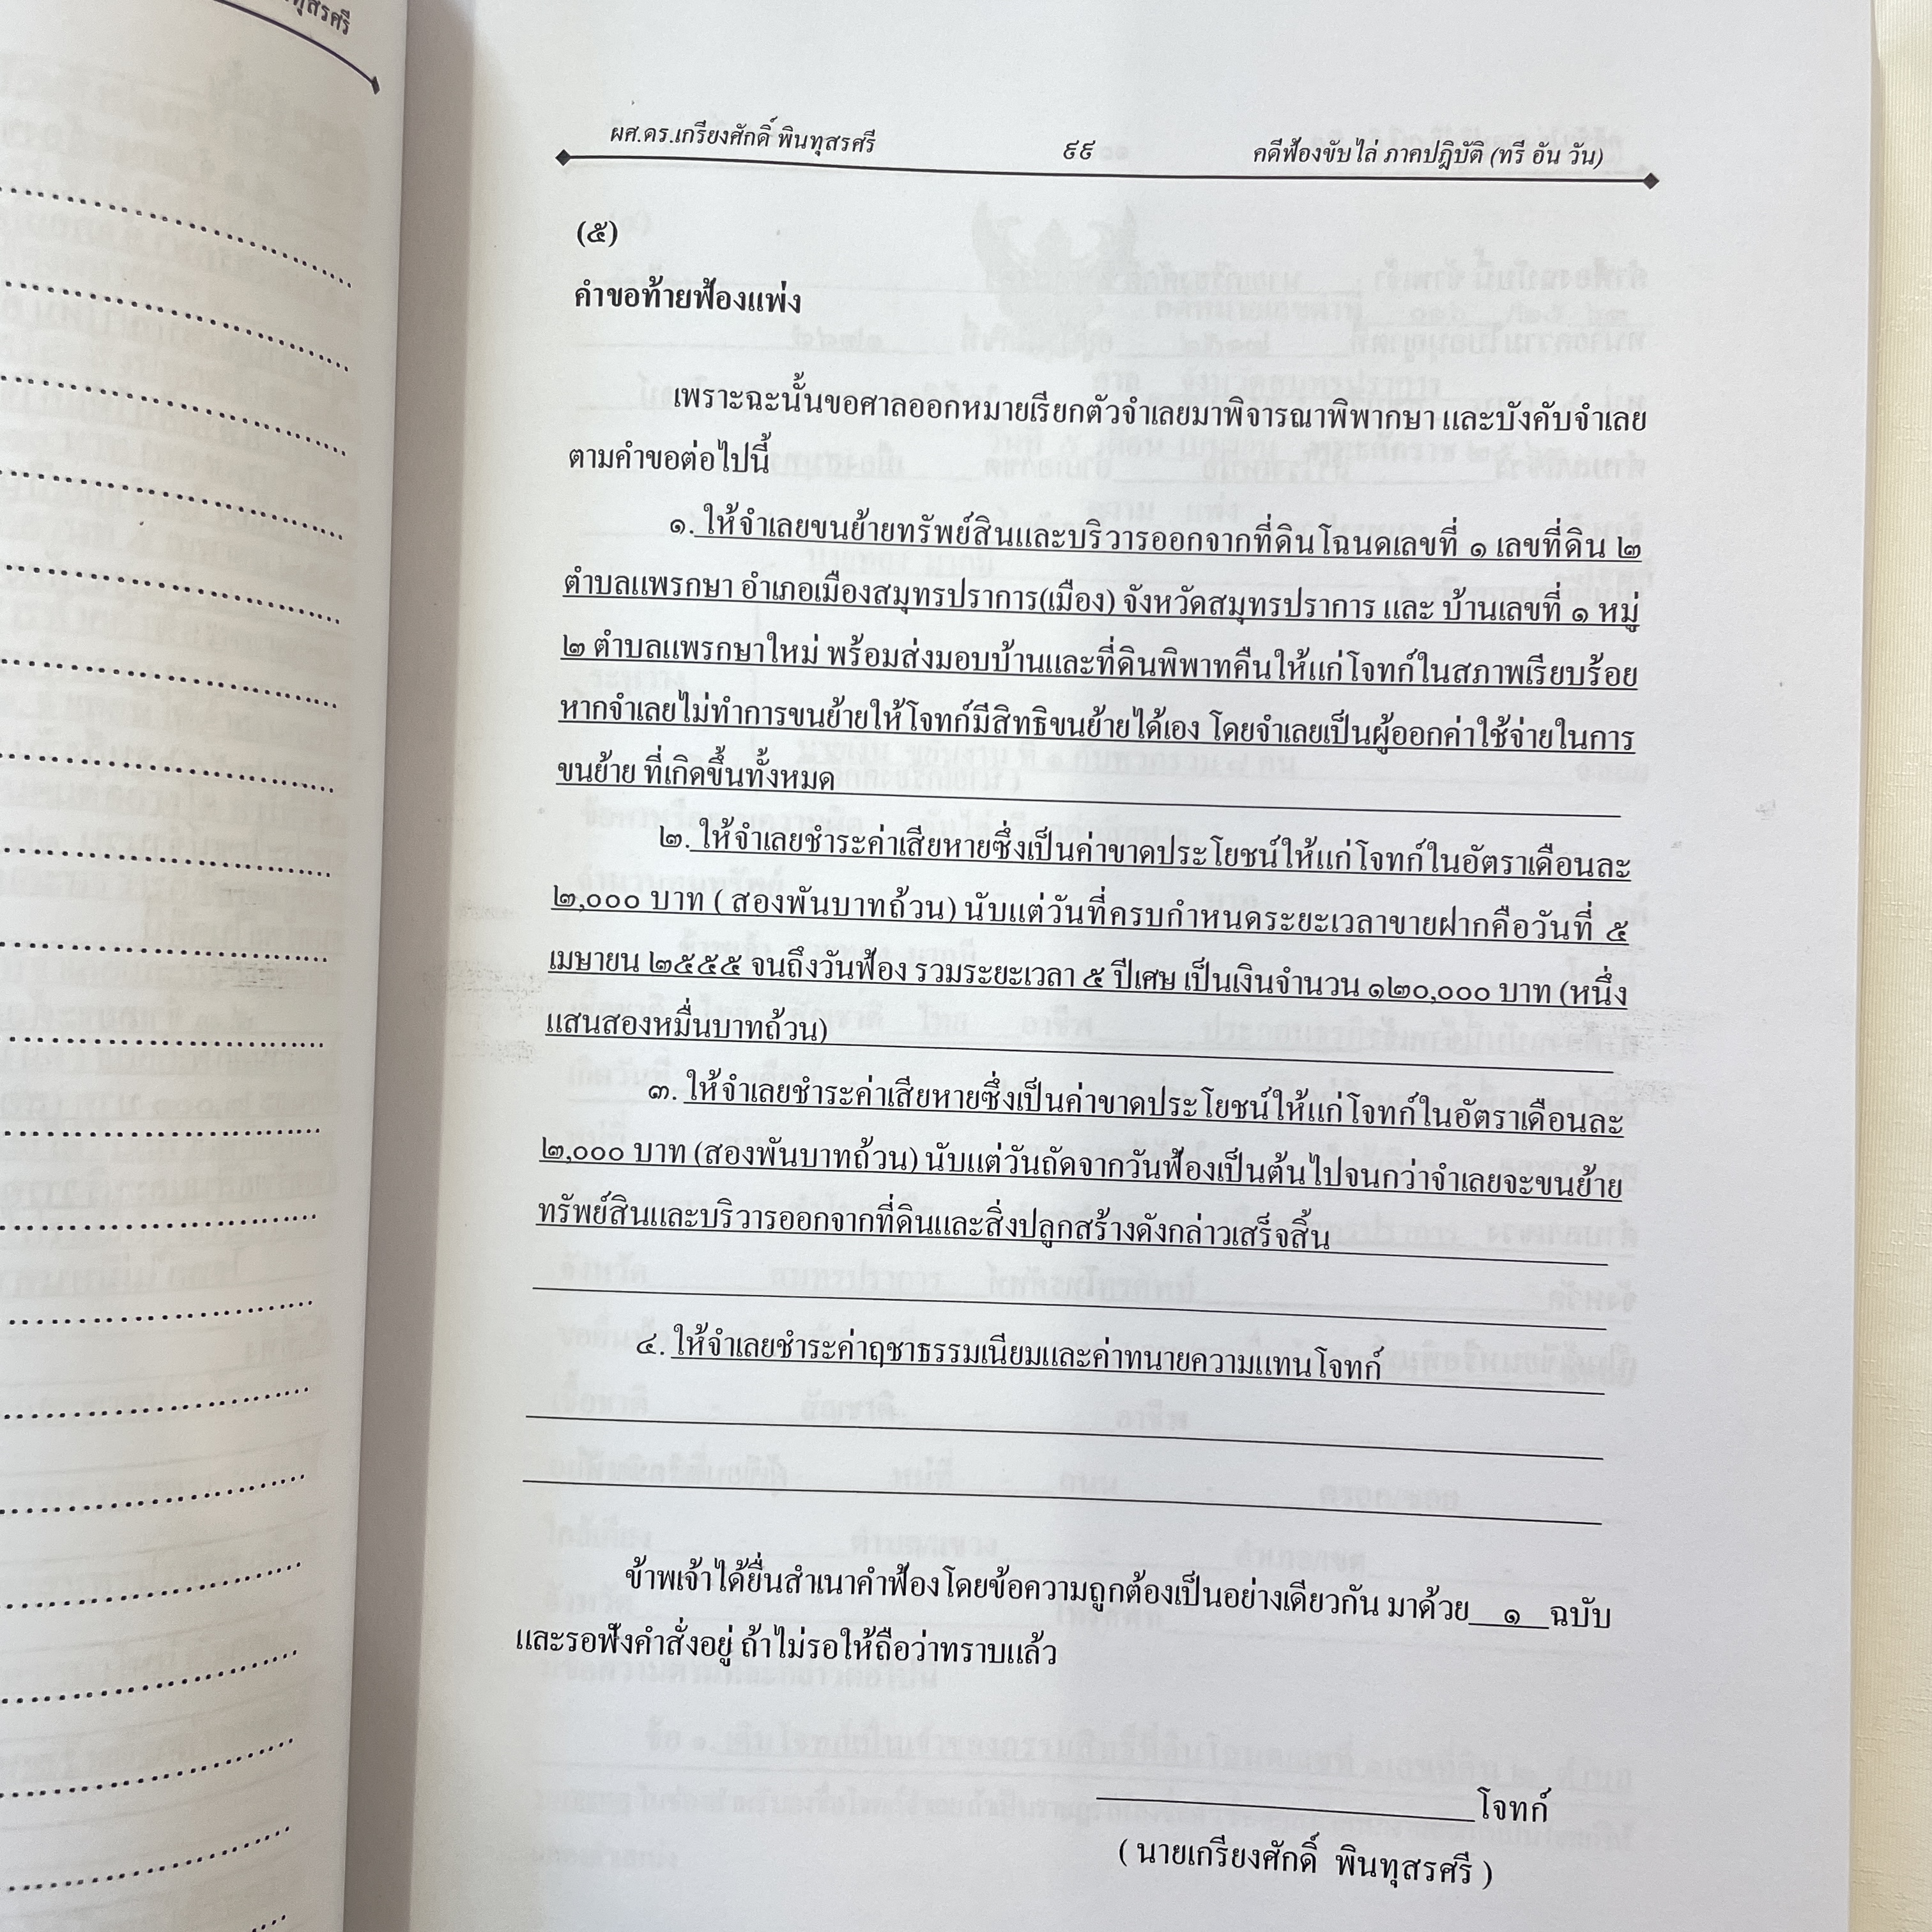 ผศ.ดร.เกรียงศักดิ์ พินทุสรศรี ๙๙ คดีฟ้องขับไล่ ภาคปฎิบัติ (ทรี อัน วัน)
(๕)
คำขอท้ายฟ้องแพ่ง
เพราะฉะนั้นขอศาลออกหมายเรียกตัวจำเลยมาพิจารณาพิพากษา และบังคับจำเลย
ตามคำขอต่อไปนี้
๑. ให้จำเลยขนย้ายทรัพย์สินและบริวารออกจากที่ดินโฉนดเลขที่ ๑ เลขที่ดิน ๒
ตำบลแพรกษา อำเภอเมืองสมุทรปราการ(เมือง) จังหวัดสมุทรปราการ และ บ้านเลขที่ ๑ หมู่
๒ ตำบลแพรกษาใหม่ พร้อมส่งมอบบ้านและที่ดินพิพาทคืนให้แก่โจทก์ในสภาพเรียบร้อย
หากจำเลยไม่ทำการขนย้ายให้โจทก์มีสิทธิขนย้ายได้เอง โดยจำเลยเป็นผู้ออกค่าใช้จ่ายในการ
ขนย้าย ที่เกิดขึ้นทั้งหมด
๒. ให้จำเลยชำระค่าเสียหายซึ่งเป็นค่าขาดประโยชน์ให้แก่โจทก์ในอัตราเดือนละ
๒,๐๐๐ บาท ( สองพันบาทถ้วน) นับแต่วันที่ครบกำหนดระยะเวลาขายฝากคือวันที่ ๕
เมษายน ๒๕๕๕ จนถึงวันฟ้อง รวมระยะเวลา ๕ ปีเศษ เป็นเงินจำนวน ๑๒๐,๐๐๐ บาท (หนึ่ง
แสนสองหมื่นบาทถ้วน)
๓. ให้จำเลยชำระค่าเสียหายซึ่งเป็นค่าขาดประโยชน์ให้แก่โจทก์ในอัตราเดือนละ
๒,๐๐๐ บาท (สองพันบาทถ้วน) นับแต่วันถัดจากวันฟ้องเป็นต้นไปจนกว่าจำเลยจะขนย้าย
ทรัพย์สินและบริวารออกจากที่ดินและสิ่งปลูกสร้างดังกล่าวเสร็จสิ้น
๔. ให้จำเลยชำระค่าฤชาธรรมเนียมและค่าทนายความแทนโจทก์
ข้าพเจ้าได้ยื่นสำเนาคำฟ้องโดยข้อความถูกต้องเป็นอย่างเดียวกัน มาด้วย ๑ ฉบับ
และรอฟังคำสั่งอยู่ ถ้าไม่รอให้ถือว่าทราบแล้ว
โจทก์
( นายเกรียงศักดิ์ พินทุสรศรี )